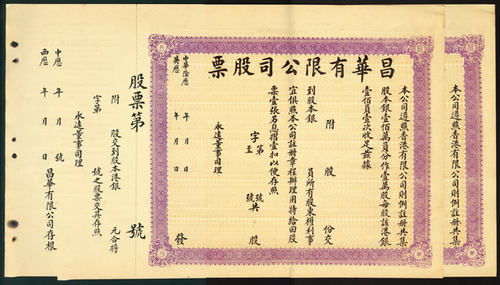 昌華有限公司股票
本公司遵照香港有限公司則例註冊共集
本公司遵照香港有限公司則例註冊共集
股本銀壹佰萬員分作壹萬股每股該港銀
壹佰員壹次收足茲據
附 股 份交
到股本銀 員所有股東權利事
宜俱照本公司註冊章程辦理用特給回股
票壹張另息摺壹扣以便存照
字第 號 號共 股
永遠董事司理
中華陰歷 年 月 日
英歷 年 月 日 發
股票第 號
附 股交到股本港銀 元合將
字第 號之股票交其存照
永遠董事司理
中歷 年 月 號
西歷 年 月 日 昌華有限公司存根